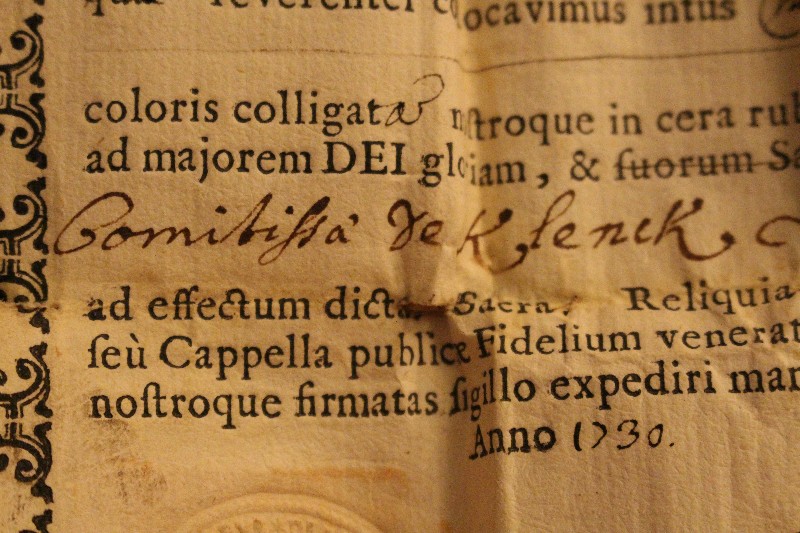 reverenter collocavimus intus
coloris colligatæ nostroque in cera rub
ad majorem DEI gloriam, & ſuorum Sa
Comitiſsâ De Klenck
ad effectum dictas Sacras Reliquia
ſeù Cappella publicæ Fidelium venerat
noſtroque firmatas ſigillo expediri man
Anno 1730.